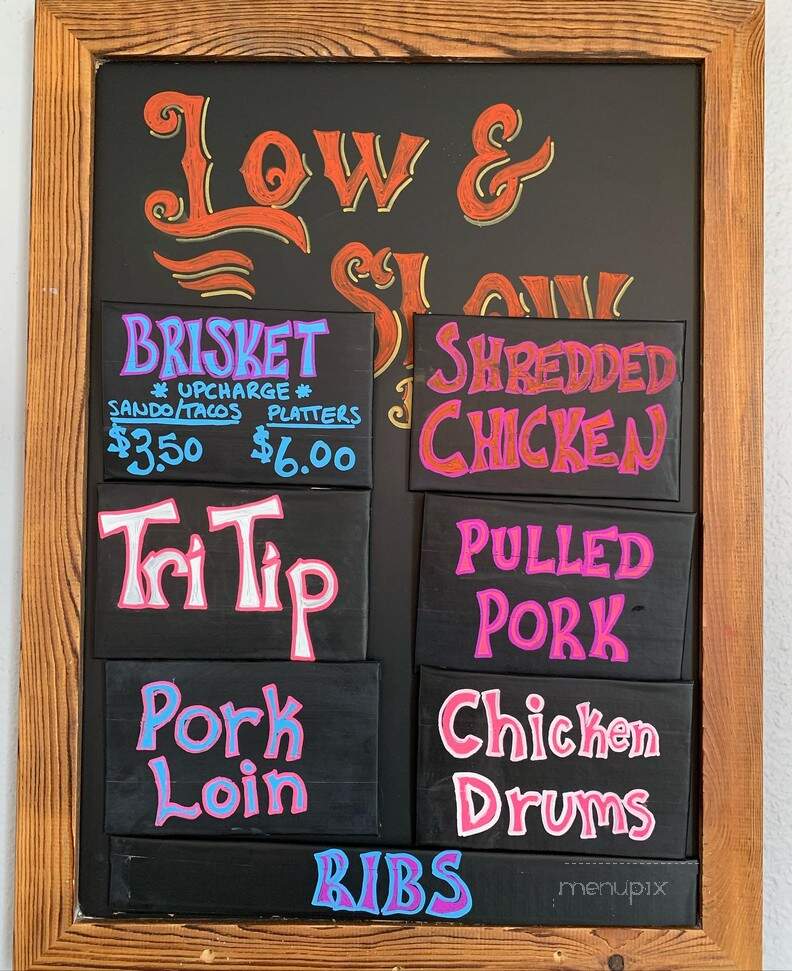 Low &
Slow
BRISKET
* UPCHARGE *
SANDO/TACOS PLATTERS
$3.50 $6.00
SHREDDED
CHICKEN
Tri Tip
PULLED
PORK
Pork
Loin
Chicken
Drums
RIBS
menupix